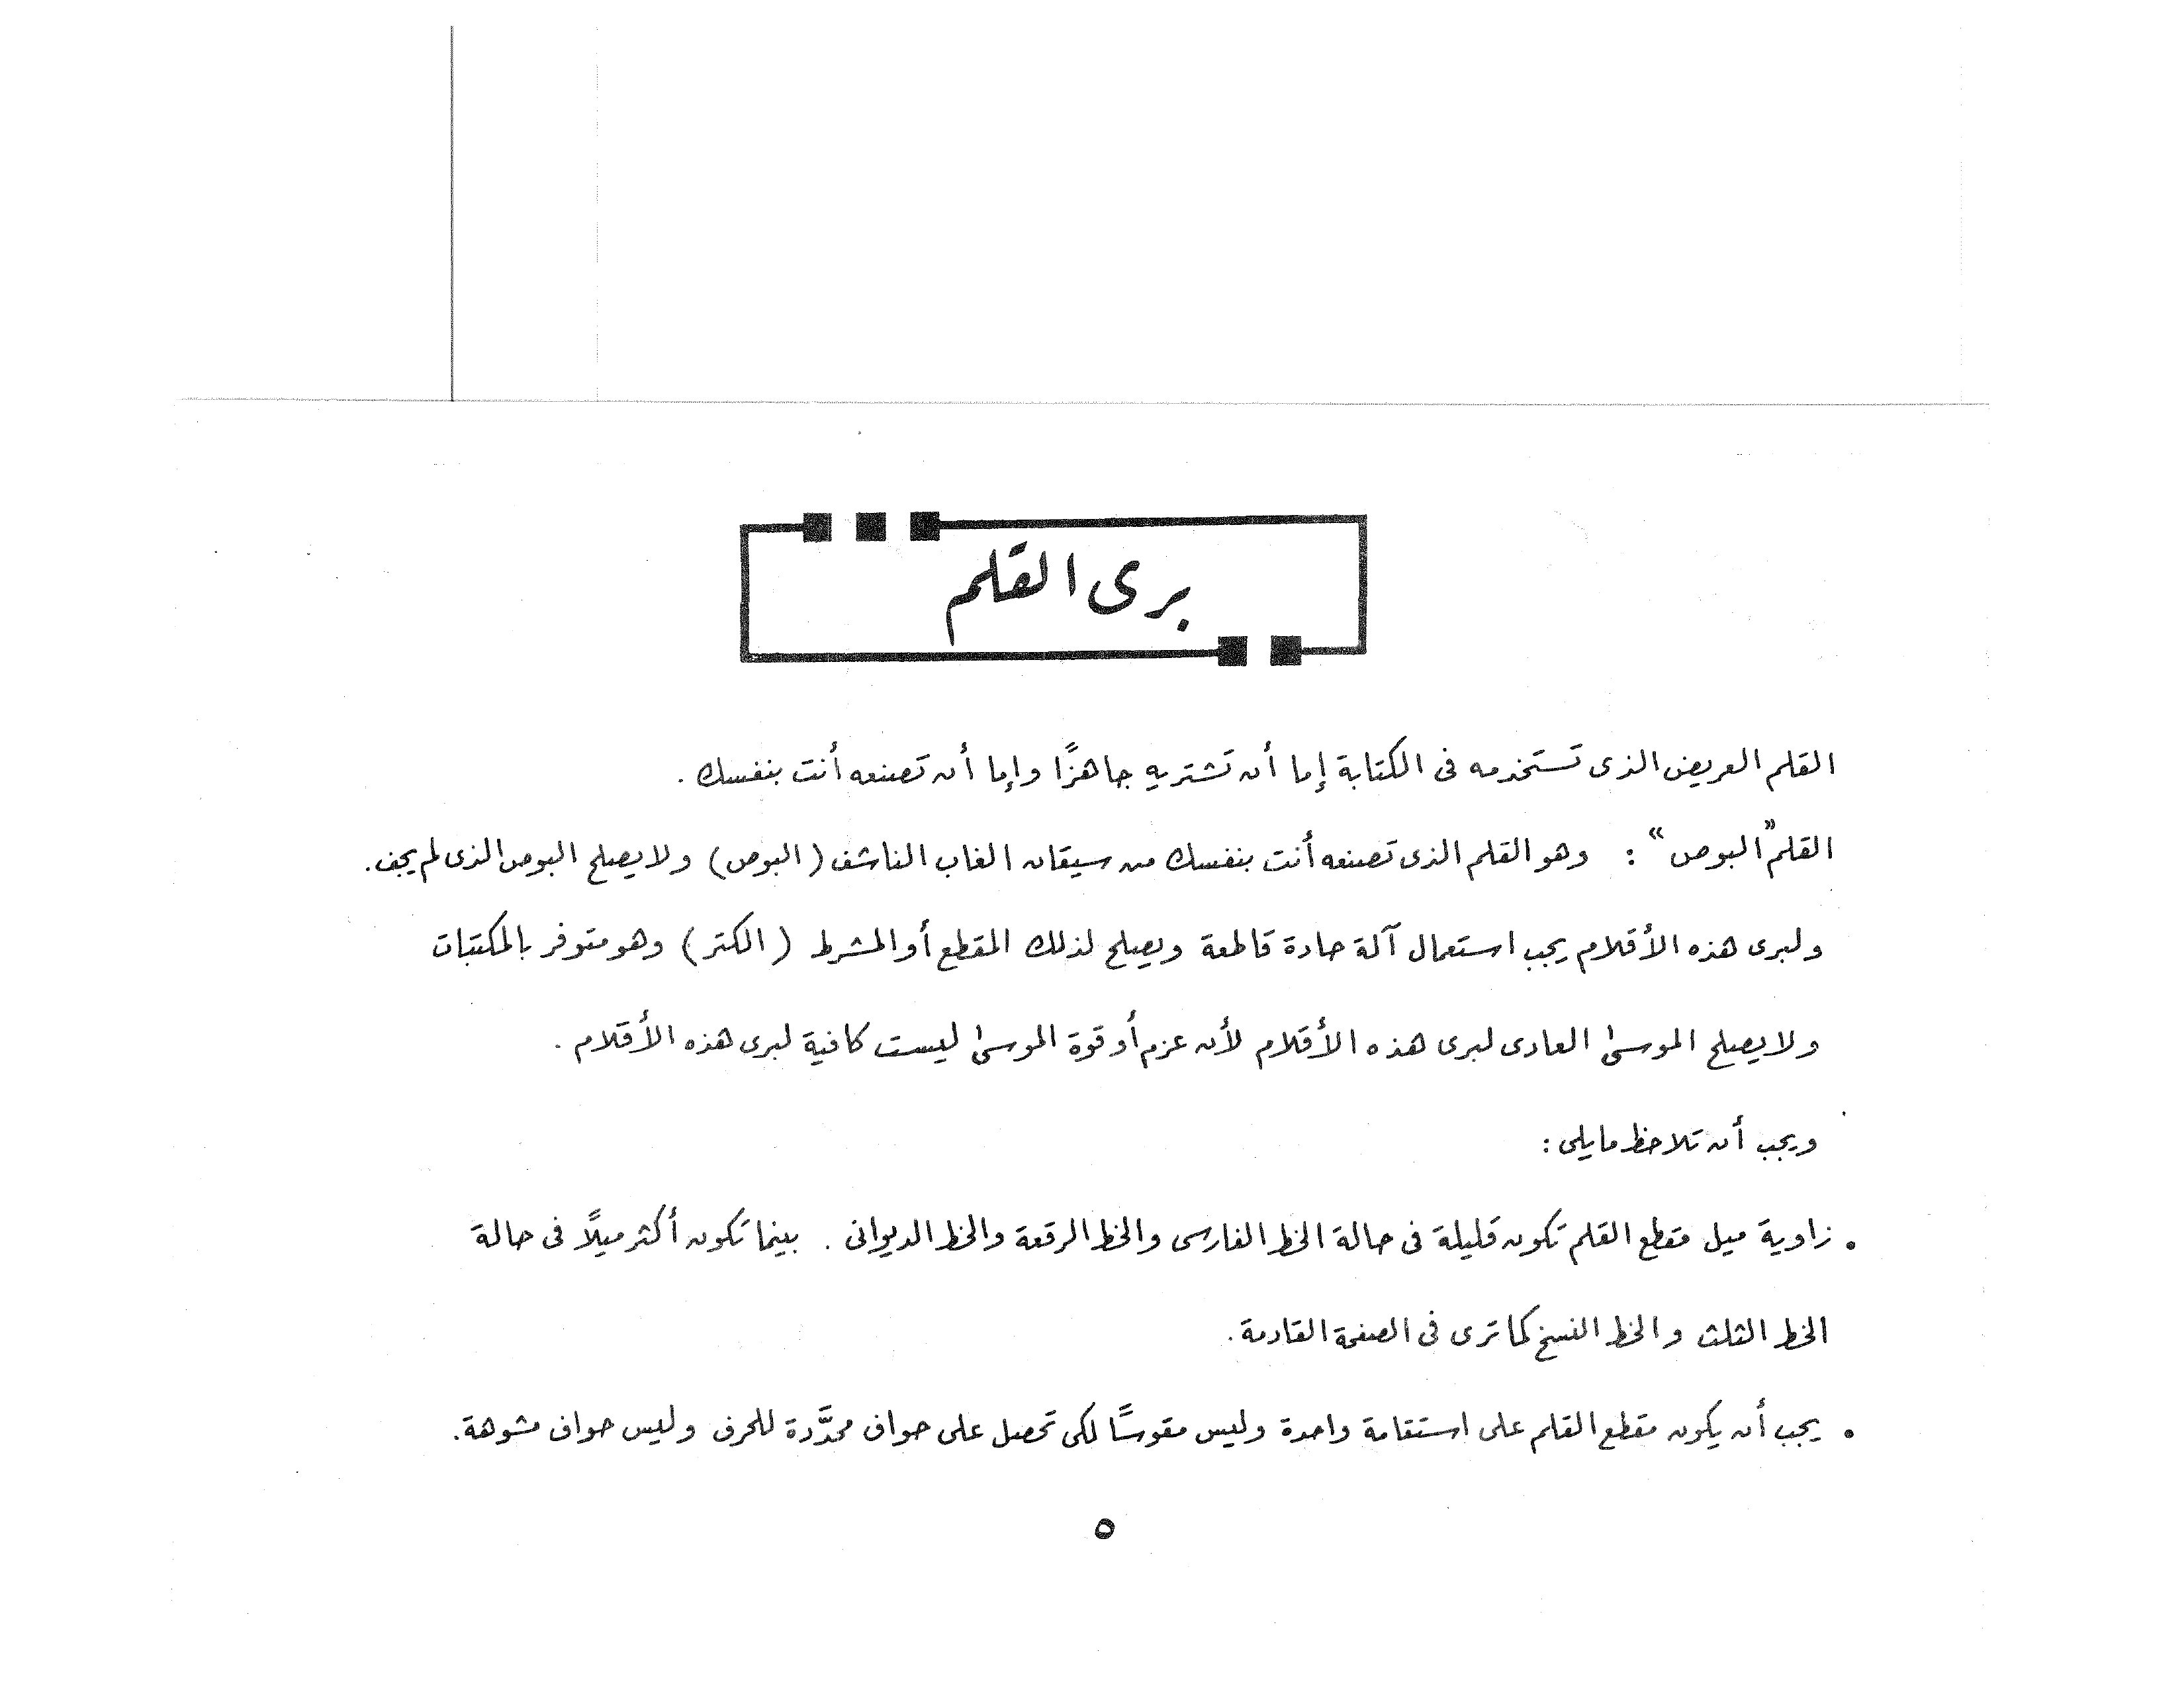 برى القلم
القلم العريض الذى تستخدمه فى الكتابة إما أن تشتريه جاهزًا وإما أن تصنعه أنت بنفسك .
القلم "البوص" : وهو القلم الذى تصنعه أنت بنفسك من سيقان الغاب الناشف ( البوص ) ولا يصلح البوص الذى لم يجف .
ولبرى هذه الأقلام يجب استعمال آلة حادة قاطعة ويصلح لذلك المقطع أو المشرط ( الكتر ) وهو متوفر بالمكتبات
ولا يصلح الموسىٰ العادى لبرى هذه الأقلام لأن عزم أو قوة الموسىٰ ليست كافية لبرى هذه الأقلام .
ويجب أن تلاحظ ما يلى :
• زاوية ميل مقطع القلم تكون قليلة فى حالة الخط الفارسى والخط الرقعة والخط الديوانى . بينما تكون أكثر ميلًا فى حالة
الخط الثلث والخط النسخ كما ترى فى الصفحة القادمة .
• يجب أن يكون مقطع القلم على استقامة واحدة وليس مقوسًا لكى تحصل على حواف محدَّدة للحرف وليس حواف مشوهة .
٥